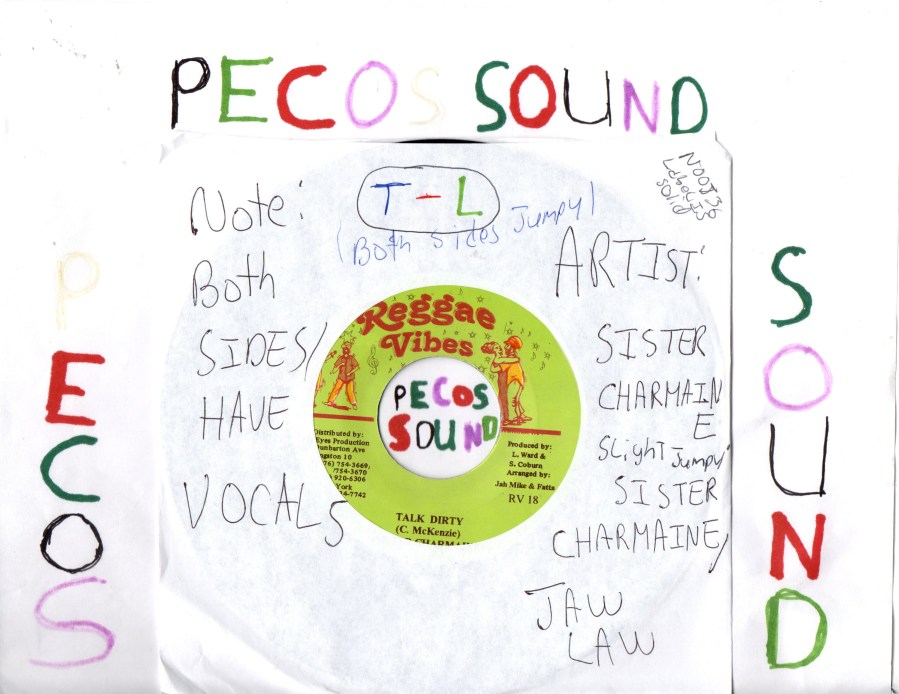 PECOS SOUND
PECOS
SOUND
T-L
(Both Sides Jumpy)
Note:
Both
SIDES/
HAVE
VOCALS
Reggae
Vibes
PECOS
SOUND
Distributed by:
Eyes Production
Dunbarton Ave
ngston 10
76) 754-3669,
/754-3670
920-6306
York
4-7742
Produced by:
L. Ward &
S. Coburn
Arranged by:
Jah Mike & Fatta
RV 18
TALK DIRTY
(C. McKenzie)
CHARMAI
ARTIST:
SISTER
CHARMAIN
E
Slight Jumpy
SISTER
CHARMAINE/
JAW
LAW